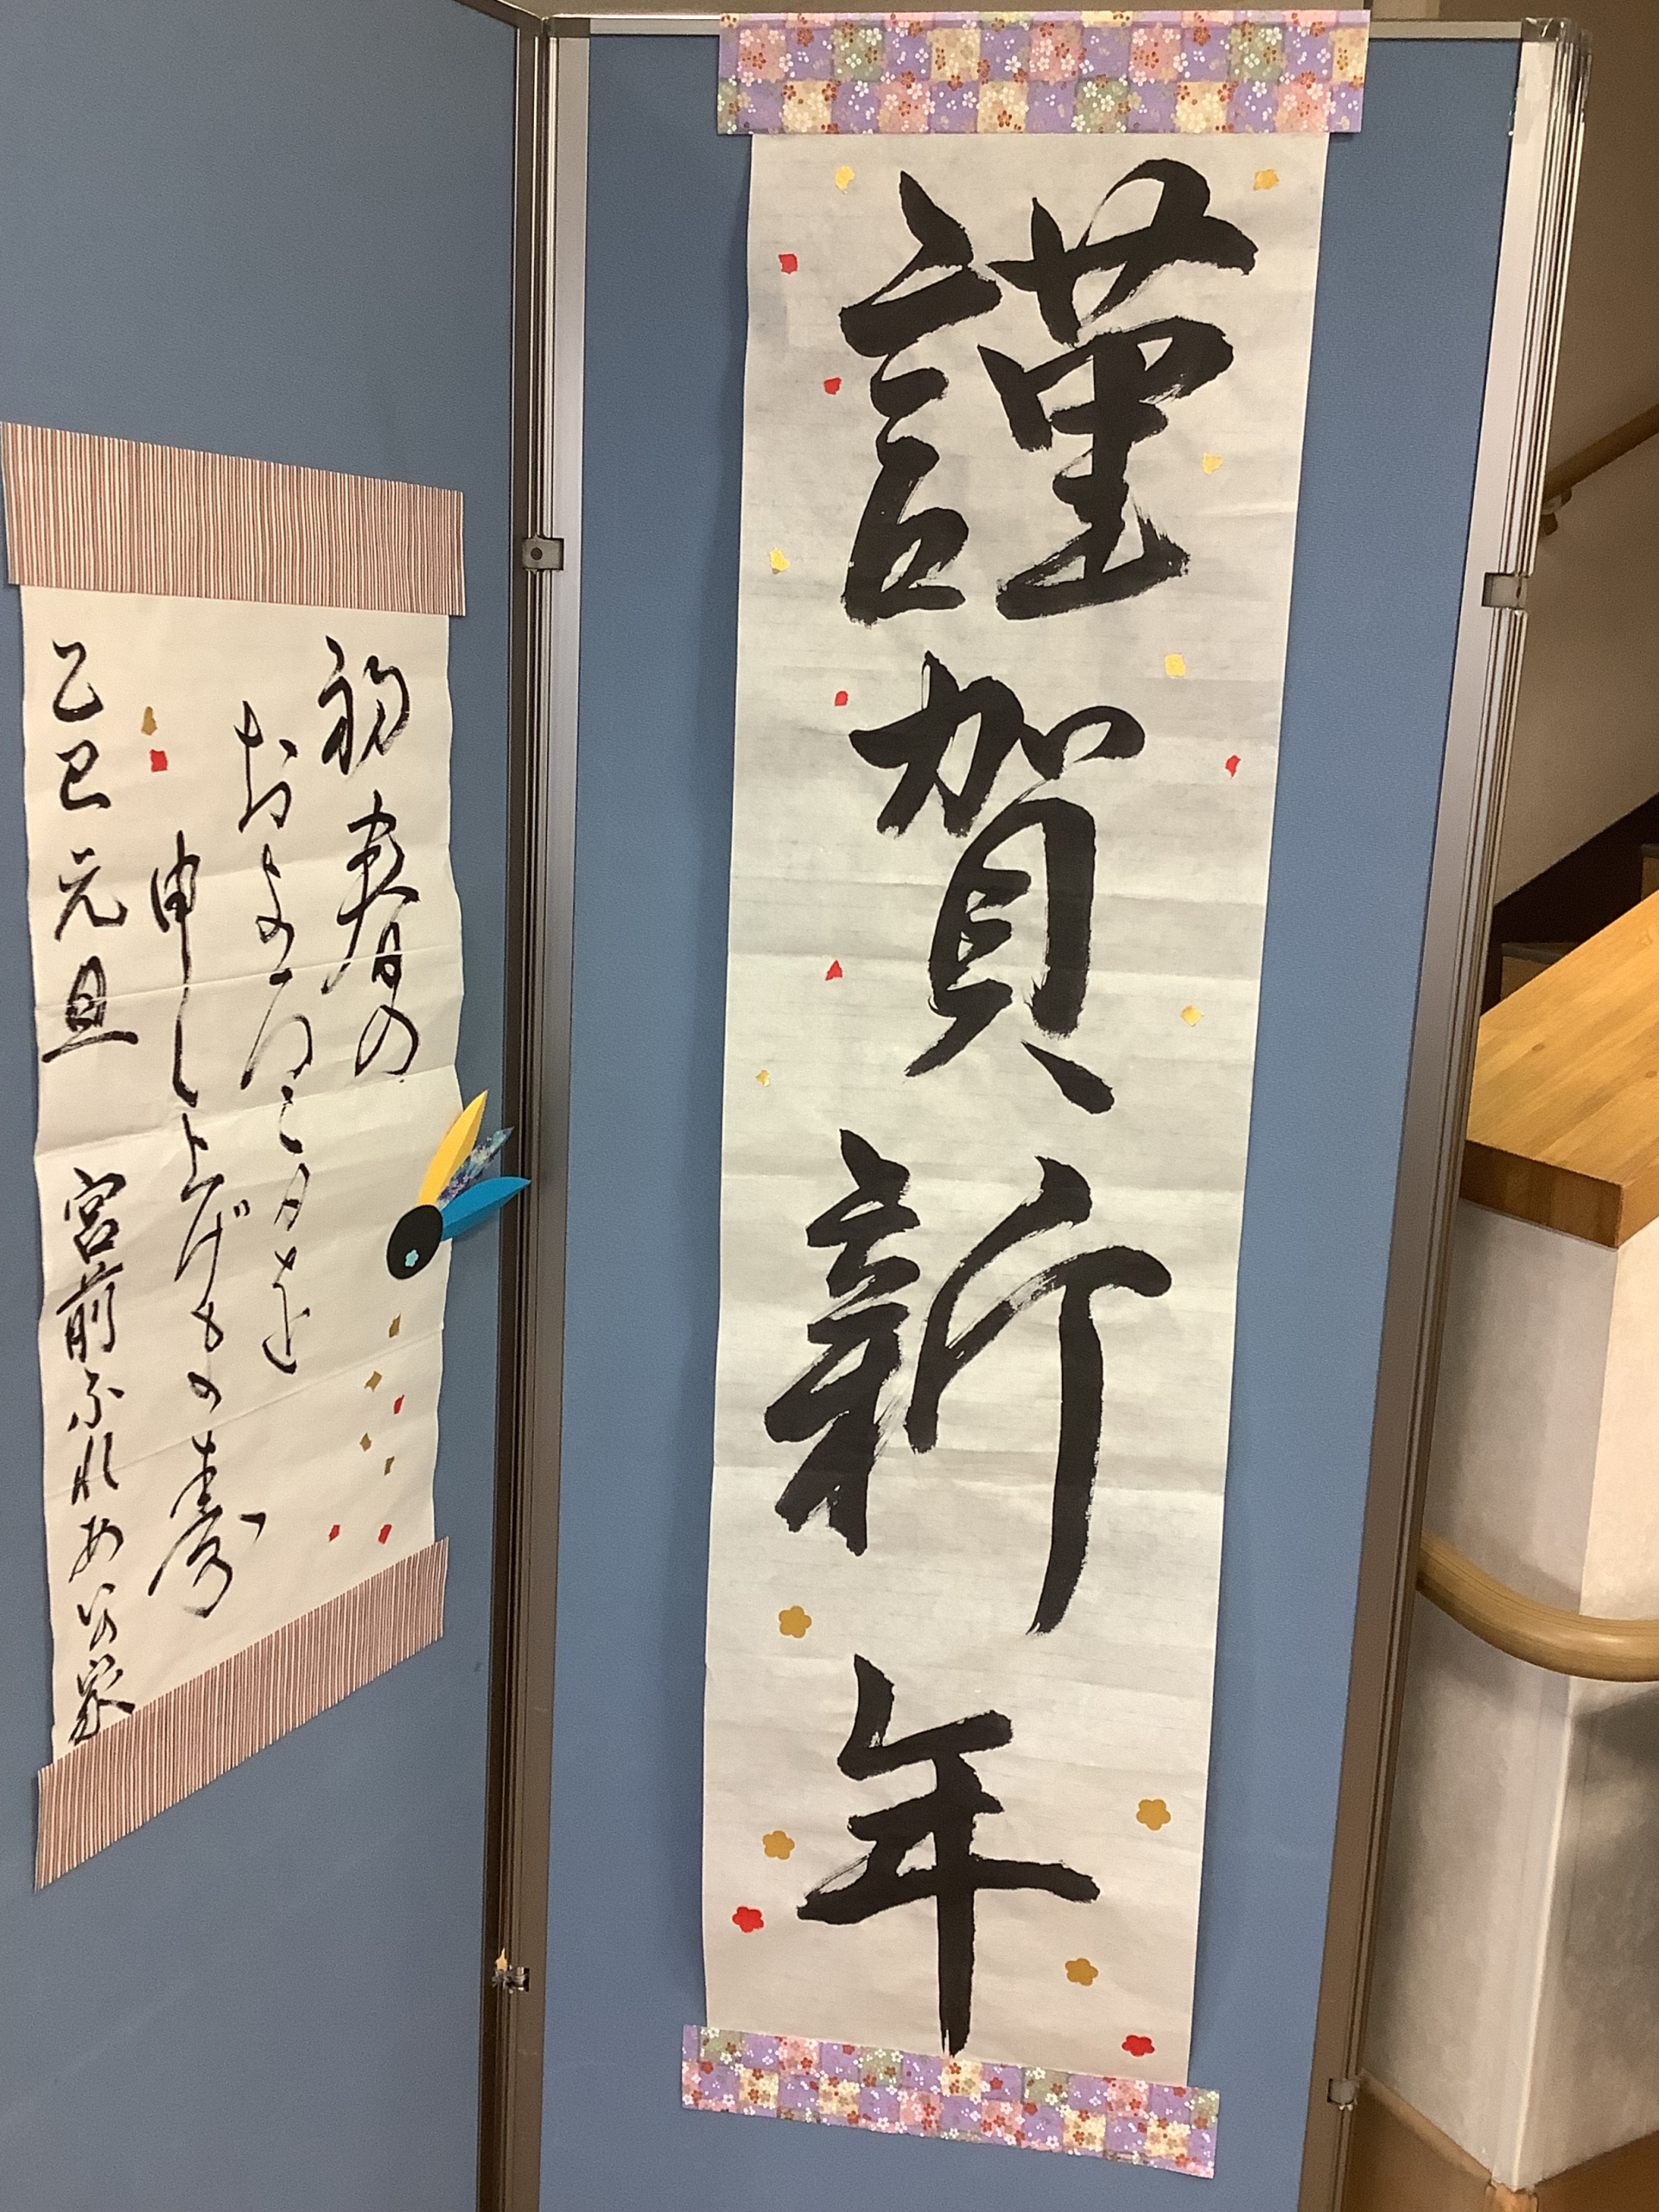 謹賀新年
初春の
およろこびを
申し上げます
乙巳元旦 宮前ふれあいの家